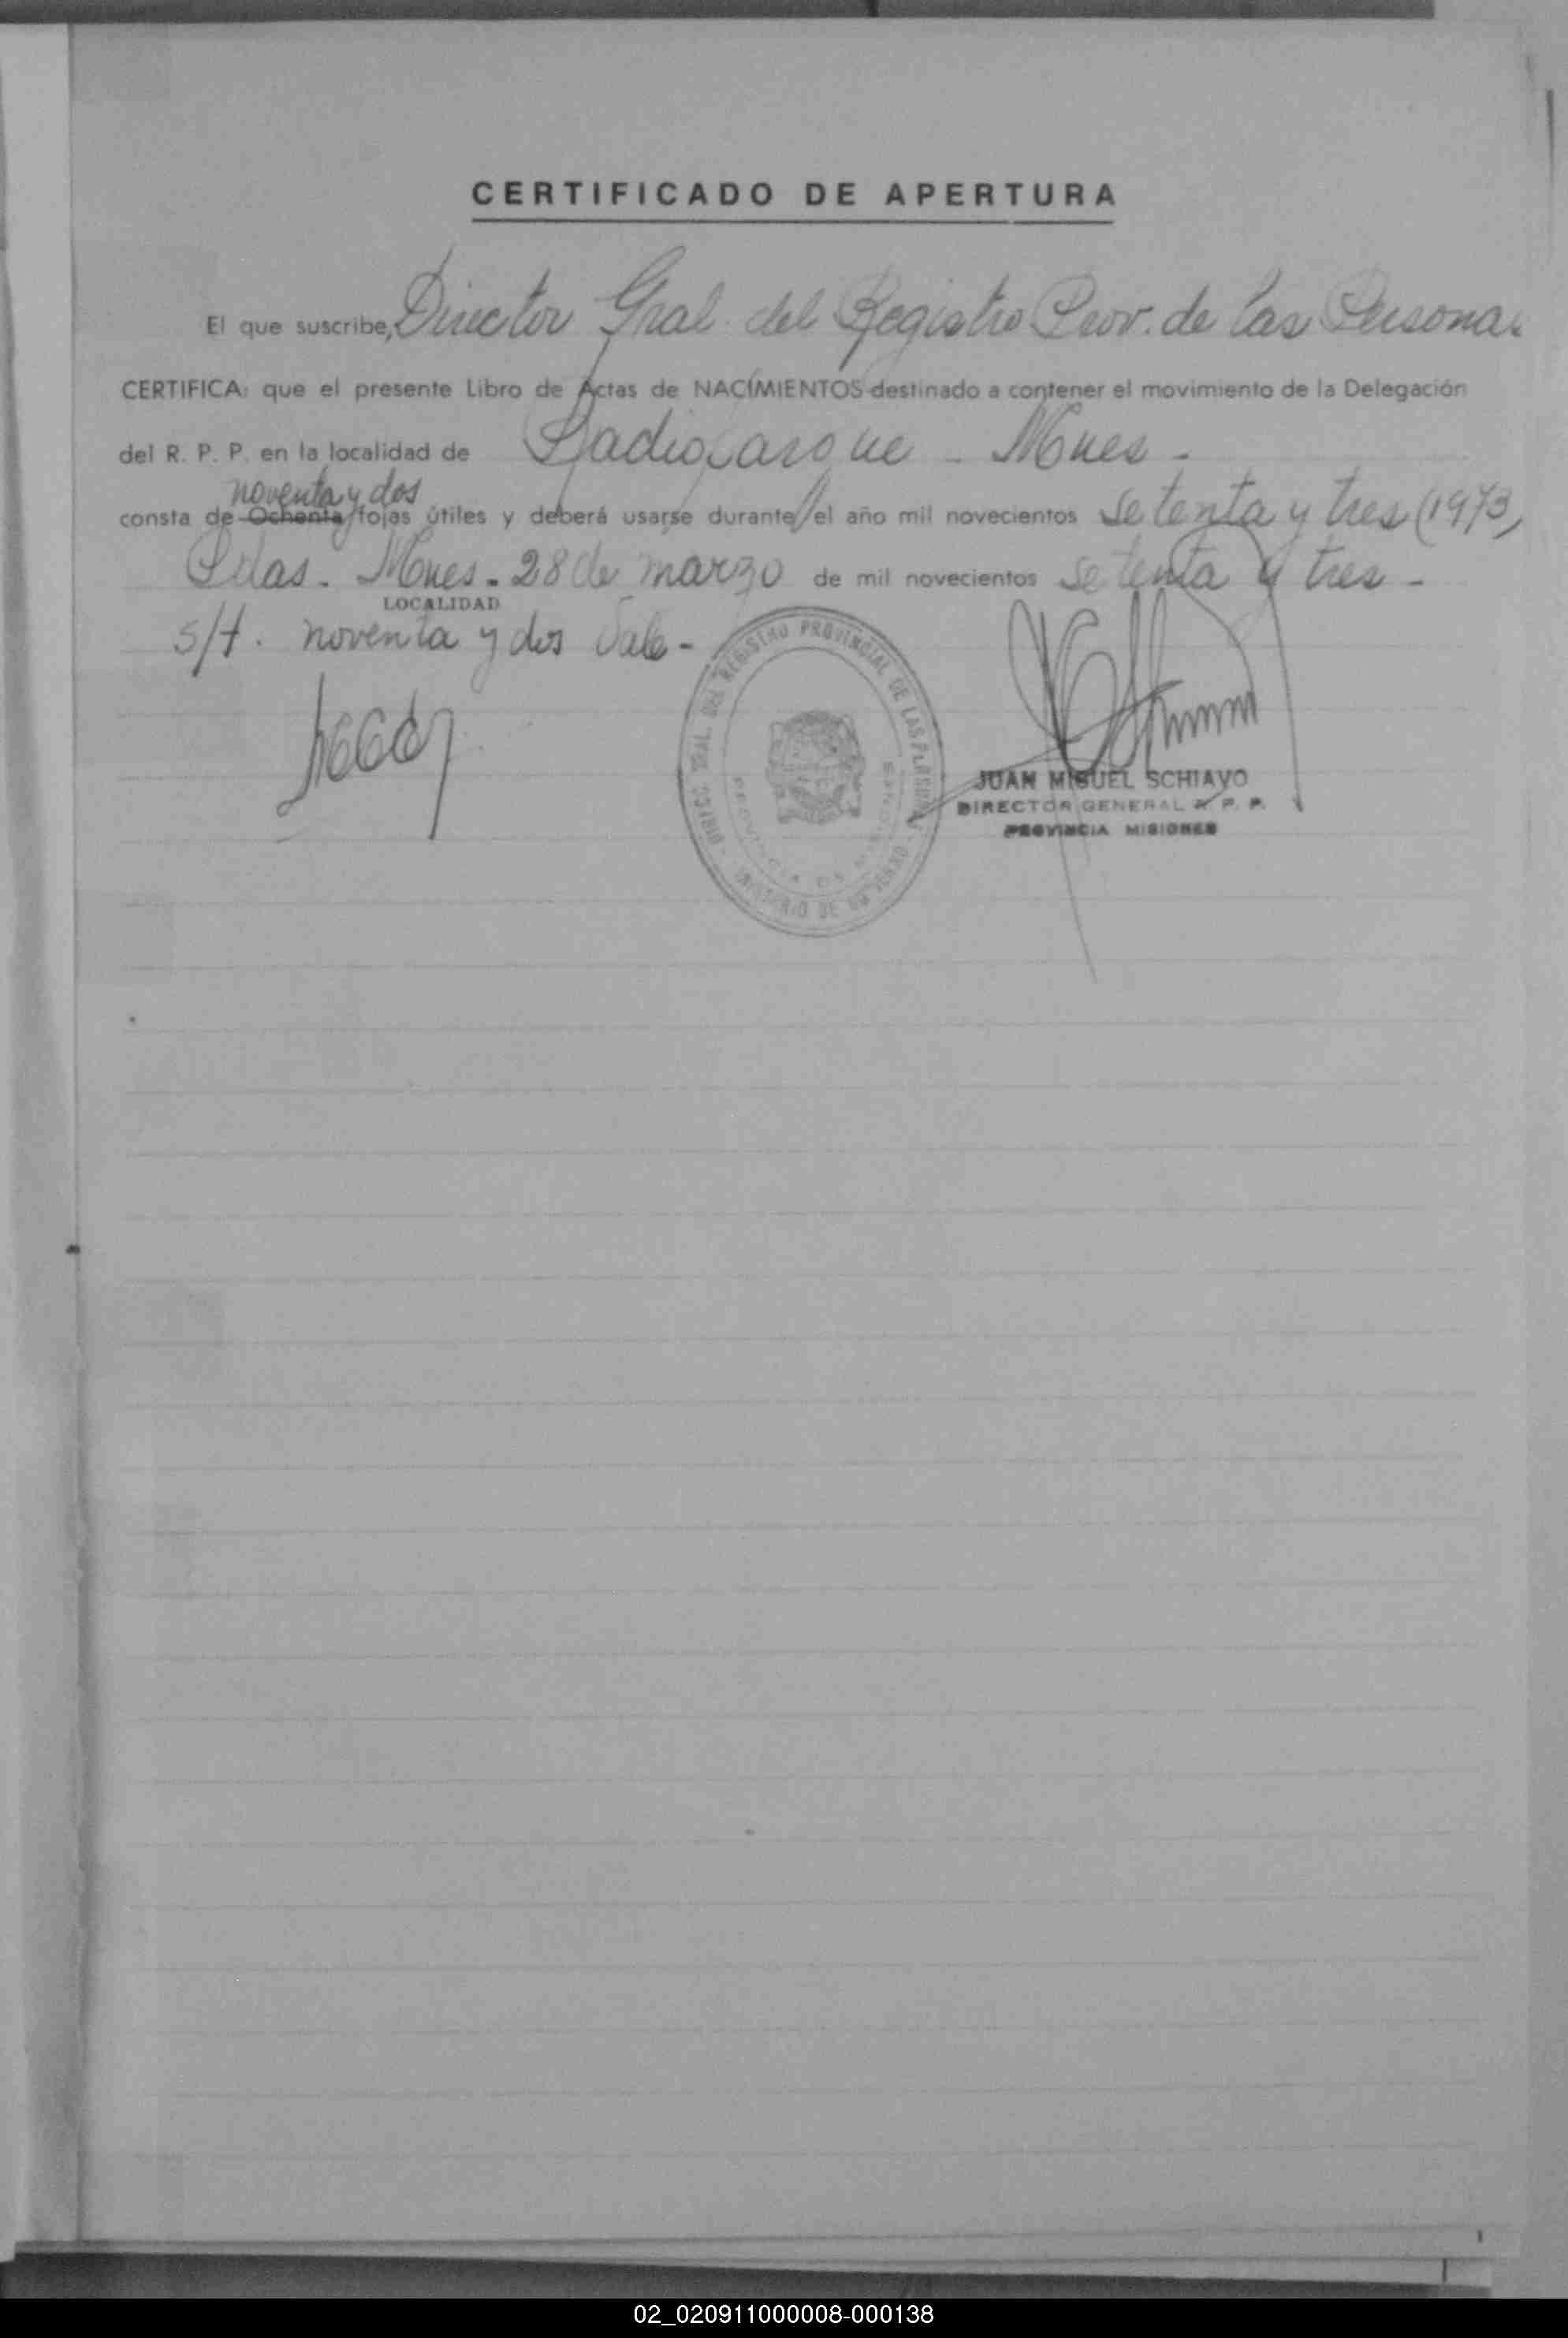 CERTIFICADO DE APERTURA
El que suscribe, Director Gral. del Registro Prov. de las Personas
CERTIFICA: que el presente Libro de Actas de NACIMIENTOS destinado a contener el movimiento de la Delegación
del R. P. P. en la localidad de Mnes -
noventa y dos
consta de Ochenta fojas útiles y deberá usarse durante el año mil novecientos setenta y tres (1973)
Pdas. Mnes. 28 de marzo de mil novecientos setenta y tres -
LOCALIDAD
S/t. noventa y dos Vale -
DIREC. GRAL. DEL REGISTRO PROVINCIAL DE LAS PERSONAS
MINISTERIO DE GOBIERNO
PROVINCIA DE MISIONES
JUAN MIGUEL SCHIAVO
DIRECTOR GENERAL R. P. P.
PROVINCIA MISIONES
02_020911000008-000138